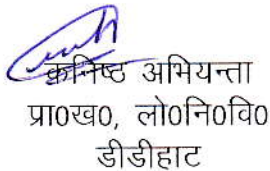 कनिष्ठ अभियन्ता
प्रा0ख0, लो0नि0वि0
डीडीहाट